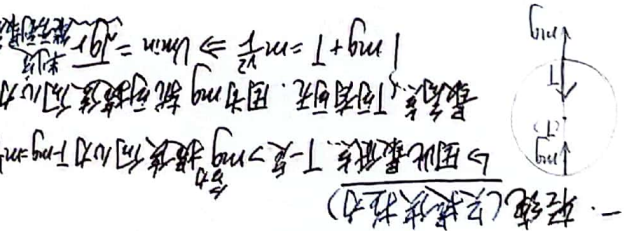 一. 轻绳(只提供拉力)
↳因此最低点 T一定>mg 合力提供向心力 T-mg=m
最高点{T可有可无. 因为mg就可提供向心力
mg+T=m v²/r ⇒ Vmin=√gr
mg
T
mg